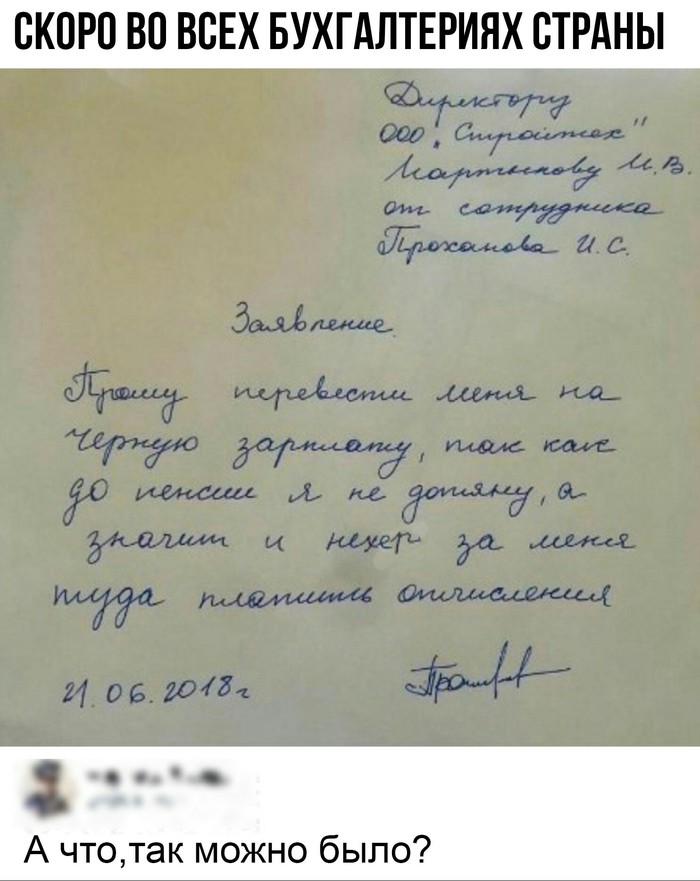 СКОРО ВО ВСЕХ БУХГАЛТЕРИЯХ СТРАНЫ
Директору
ООО „Стройтех"
Мартынову М.В.
от сотрудника
Проханова И.С.
Заявление
Прошу перевести меня на
черную зарплату, так как
до пенсии я не дотяну, а
значит и нехер за меня
туда платить отчисления
21.06.2018г
А что,так можно было?